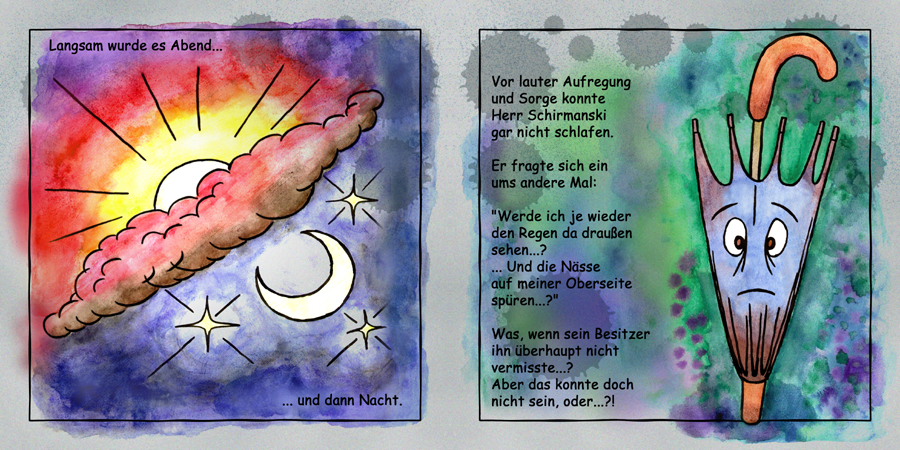 Langsam wurde es Abend...
... und dann Nacht.
Vor lauter Aufregung
und Sorge konnte
Herr Schirmanski
gar nicht schlafen.
Er fragte sich ein
ums andere Mal:
"Werde ich je wieder
den Regen da draußen
sehen...?
... Und die Nässe
auf meiner Oberseite
spüren...?"
Was, wenn sein Besitzer
ihn überhaupt nicht
vermisste...?
Aber das konnte doch
nicht sein, oder...?!